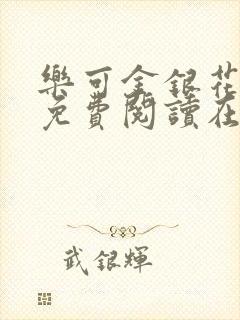 樂可金銀花
免費閱讀在
武銀輝